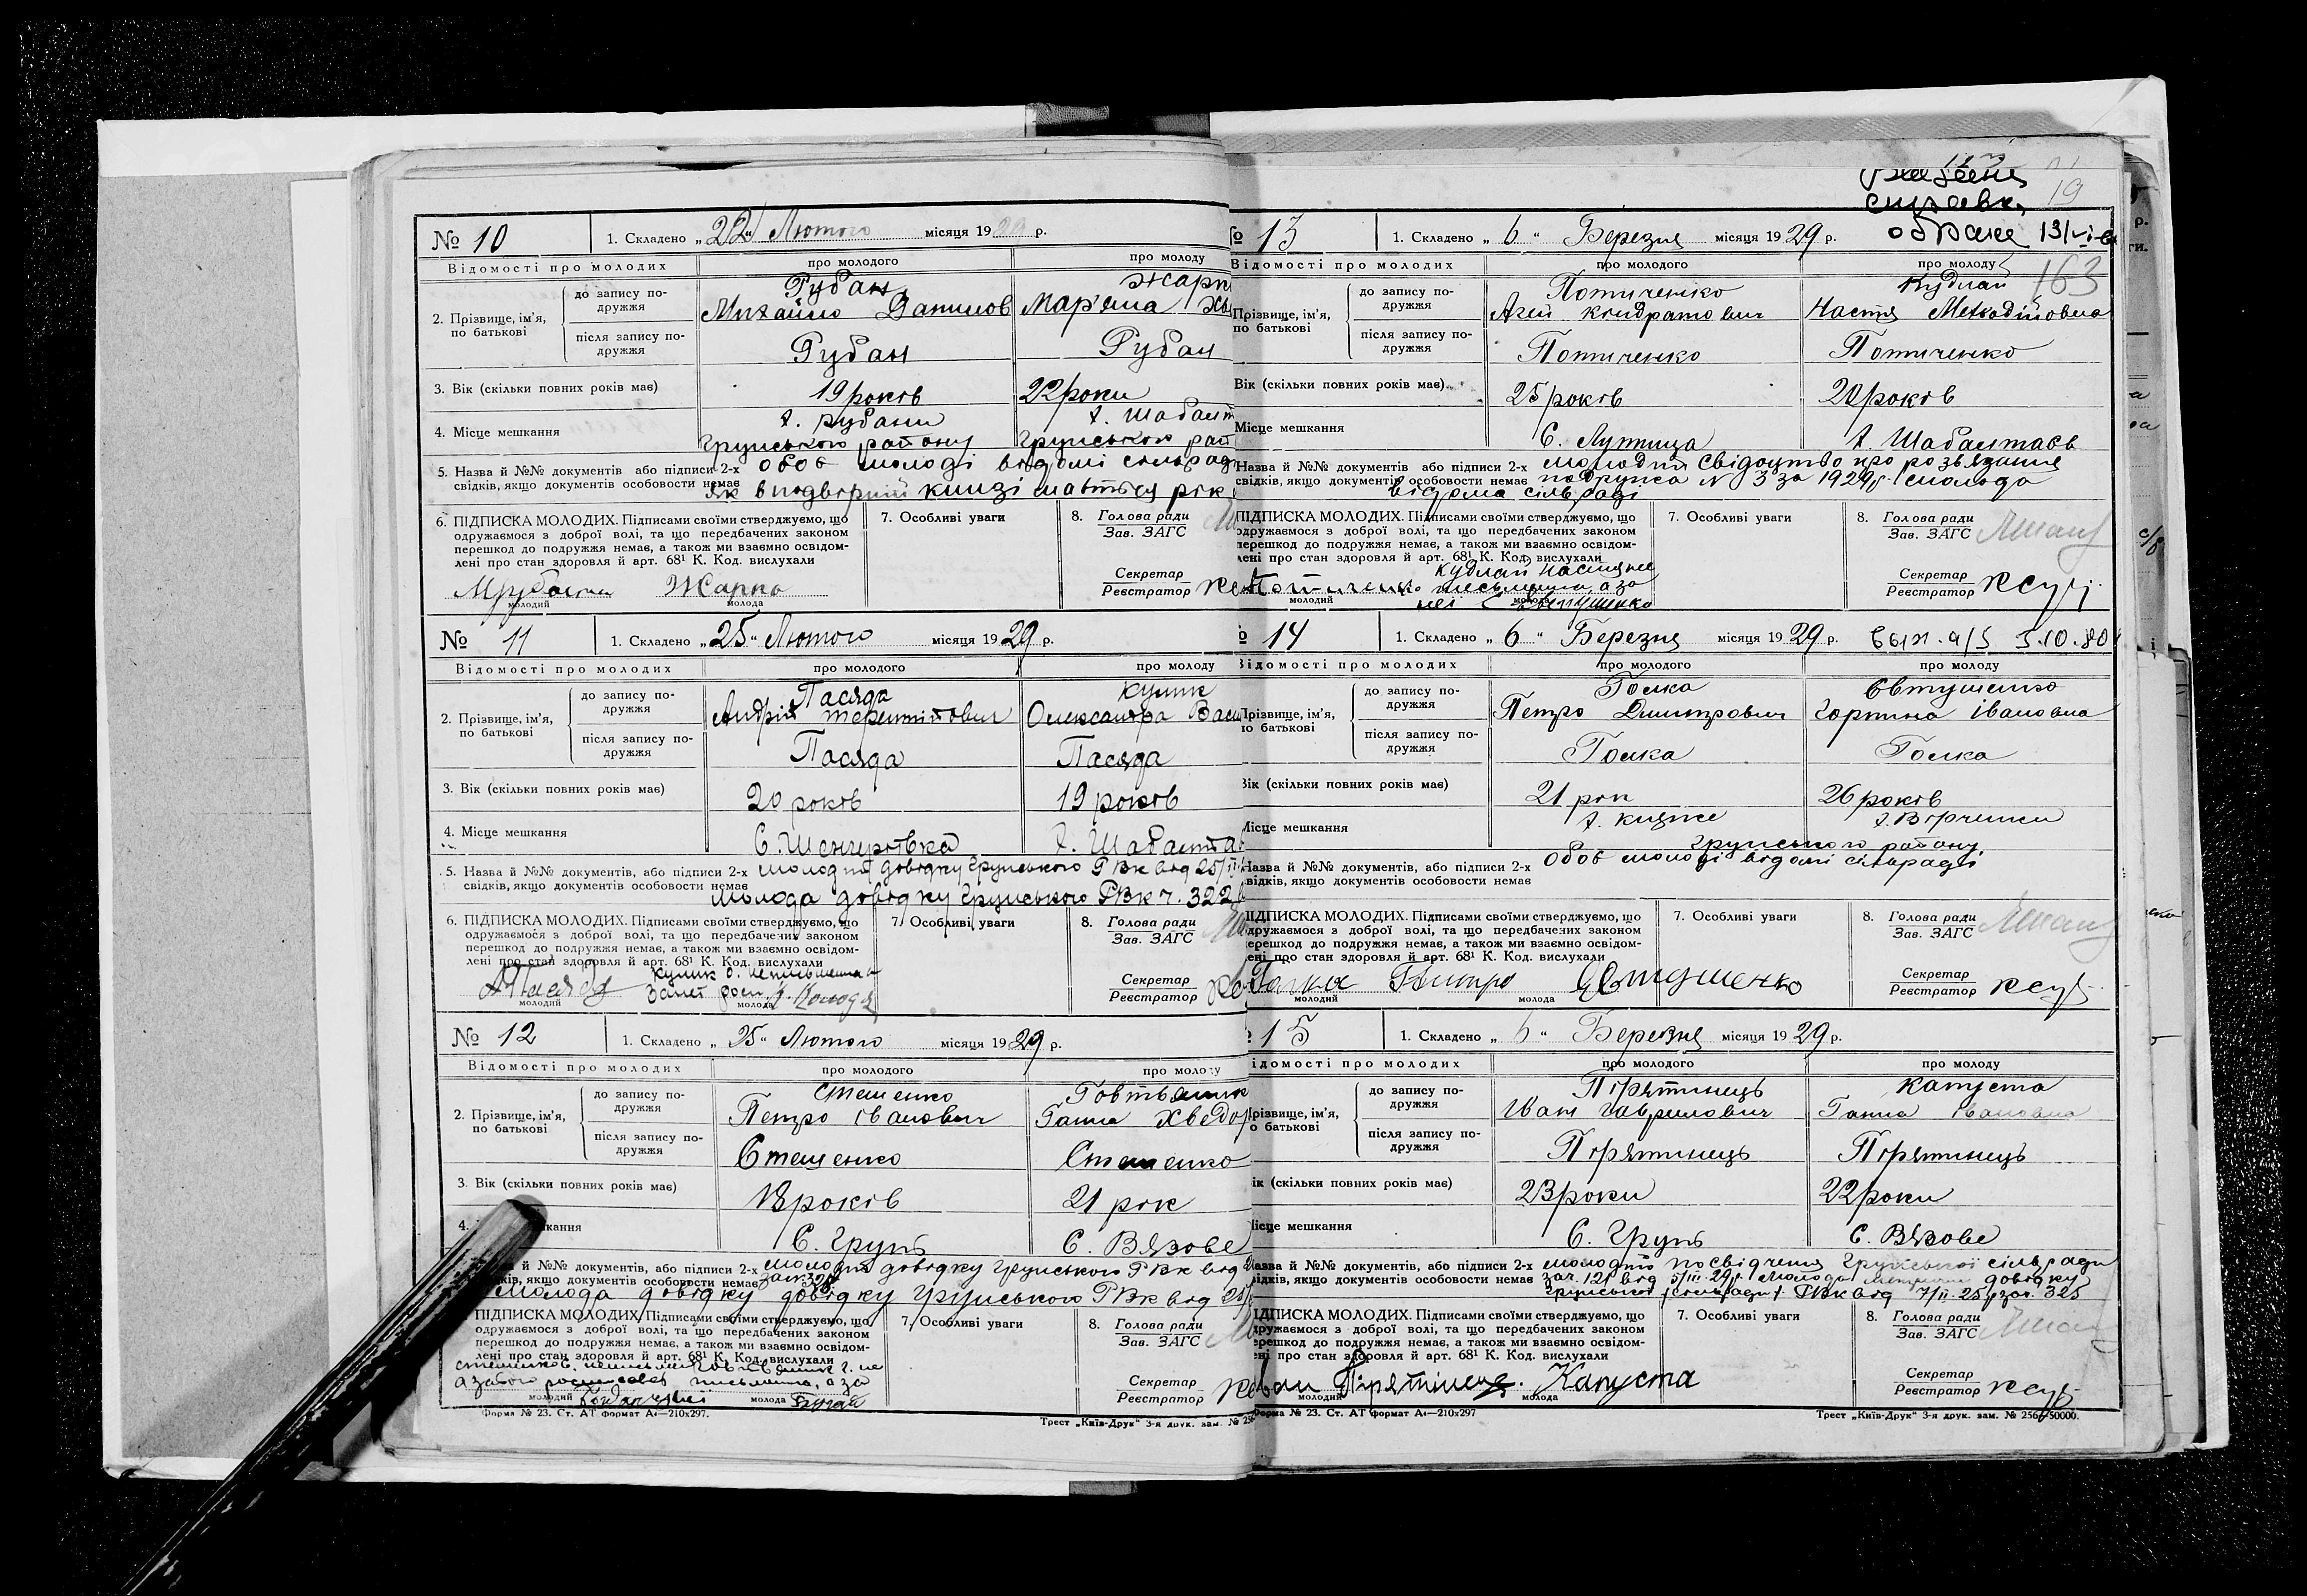 № 10
1. Складено „22“ Лютого місяця 1929 р.
Відомості про молодих
про молодого
про молоду
2. Прізвище, ім’я, по батькові
до запису подружжя
Рубан
Михайло Данилов
Жарк
Мар’яна
після запису подружжя
Рубан
Рубан
3. Вік (скільки повних років має)
19 років
22 роки
4. Місце мешкання
х. Рубани
Грунського району
х. Шабалт
Грунського рай
5. Назва й №№ документів або підписи 2-х свідків, якщо документів особовости немає
Обоє молоді відомі сільрад
як в подвірній книзі
6. ПІДПИСКА МОЛОДИХ. Підписами своїми стверджуємо, що
одружаємося з доброї волі, та що передбачених законом
перешкод до подружжя немає, а також ми взаємно освідом-
лені про стан здоровля й арт. 68¹ К. Код. вислухали
Жарко
молодий
молода
7. Особливі уваги
8. Голова ради
Зав. ЗАГС
Секретар
Реєстратор
№ 11
1. Складено „25“ Лютого місяця 1929 р.
Відомості про молодих
про молодого
про молоду
2. Прізвище, ім’я, по батькові
до запису подружжя
Пасяда
Андрій Терентійович
Кулик
Олександра Васи
після запису подружжя
Пасяда
Пасяда
3. Вік (скільки повних років має)
20 років
19 років
4. Місце мешкання
С.
х. Шабалта
5. Назва й №№ документів, або підписи 2-х свідків, якщо документів особовости немає
молодий довідку Грунського РВК від 25/II
Молода довідку Грунського РВК ч. 322
6. ПІДПИСКА МОЛОДИХ. Підписами своїми стверджуємо, що
одружаємося з доброї волі, та що передбачених законом
перешкод до подружжя немає, а також ми взаємно освідом-
лені про стан здоровля й арт. 68¹ К. Код. вислухали
А Пасяда
Кулик О. неписьменна
молодий
молода
7. Особливі уваги
8. Голова ради
Зав. ЗАГС
Секретар
Реєстратор
№ 12
1. Складено „25“ Лютого місяця 1929 р.
Відомості про молодих
про молодого
про молоду
2. Прізвище, ім’я, по батькові
до запису подружжя
Стешенко
Петро Іванович
Говтвяник
Ганна Хведор
після запису подружжя
Стешенко
Стешенко
3. Вік (скільки повних років має)
18 років
21 рік
4.
С. Грунь
С. Вязове
й №№ документів, або підписи 2-х
якщо документів особовости немає
молодий довідку Грунського РВК від
Молода довідку довідку Грунського РВК від 25/
ПІДПИСКА МОЛОДИХ. Підписами своїми стверджуємо, що
одружаємося з доброї волі, та що передбачених законом
перешкод до подружжя немає, а також ми взаємно освідом-
лені про стан здоровля й арт. 68¹ К. Код. вислухали
молодий
молода
7. Особливі уваги
8. Голова ради
Зав. ЗАГС
Секретар
Реєстратор
Форма № 23. Ст. АТ формат А4—210х297.
Трест „Київ-Друк“ 3-я друк. зам. № 256
19
163
№ 13
1. Складено „6“ Березня місяця 1929 р.
Відомості про молодих
про молодого
про молоду
Прізвище, ім’я, по батькові
до запису подружжя
Потиченко
Агей Кіндратович
Кудлай
Настя Метходійовна
після запису подружжя
Потиченко
Потиченко
Вік (скільки повних років має)
25 років
20 років
Місце мешкання
С. Лутища
х. Шабалтаєв
Назва й №№ документів або підписи 2-х свідків, якщо документів особовости немає
молодий свідоцтво про розвязання
подружжа № 3 за 1929 р. молода
відома сільраді
ПІДПИСКА МОЛОДИХ. Підписами своїми стверджуємо, що
одружаємося з доброї волі, та що передбачених законом
перешкод до подружжя немає, а також ми взаємно освідом-
лені про стан здоровля й арт. 68¹ К. Код. вислухали
молодий
молода
7. Особливі уваги
8. Голова ради
Зав. ЗАГС
Секретар
Реєстратор
14
1. Складено „6“ Березня місяця 1929 р.
5.10.80
Відомості про молодих
про молодого
про молоду
Прізвище, ім’я, по батькові
до запису подружжя
Голка
Петро Дмитрович
Євтушенко
Горпина Івановна
після запису подружжя
Голка
Голка
Вік (скільки повних років має)
21 рік
26 років
Місце мешкання
х.
х. Вірченки
Грунського району
Назва й №№ документів, або підписи 2-х свідків, якщо документів особовости немає
Обоє молоді відомі сільраді
ПІДПИСКА МОЛОДИХ. Підписами своїми стверджуємо, що
одружаємося з доброї волі, та що передбачених законом
перешкод до подружжя немає, а також ми взаємно освідом-
лені про стан здоровля й арт. 68¹ К. Код. вислухали
Голка Питро Євтушенко
молодий
молода
7. Особливі уваги
8. Голова ради
Зав. ЗАГС
Секретар
Реєстратор
15
1. Складено „6“ Березня місяця 1929 р.
Відомості про молодих
про молодого
про молоду
Прізвище, ім’я, по батькові
до запису подружжя
Пірятинець
Иван Гаврилович
Капуста
Ганна Івановна
після запису подружжя
Пірятинець
Пірятинець
Вік (скільки повних років має)
23 роки
22 роки
Місце мешкання
С. Грунь
С. Вязове
Назва й №№ документів, або підписи 2-х свідків, якщо документів особовости немає
молодий посвідчення Грунської сільради
зач. 121 від 5/III-29 р. Молода довідку
РВК від 7/II-25 р зач. 325
ПІДПИСКА МОЛОДИХ. Підписами своїми стверджуємо, що
одружаємося з доброї волі, та що передбачених законом
перешкод до подружжя немає, а також ми взаємно освідом-
лені про стан здоровля й арт. 68¹ К. Код. вислухали
Пірятінець. Капуста
молодий
молода
7. Особливі уваги
8. Голова ради
Зав. ЗАГС
Секретар
Реєстратор
Форма № 23. Ст. АТ формат А4—210х297
Трест „Київ-Друк“ 3-я друк. зам. № 256 -50000.